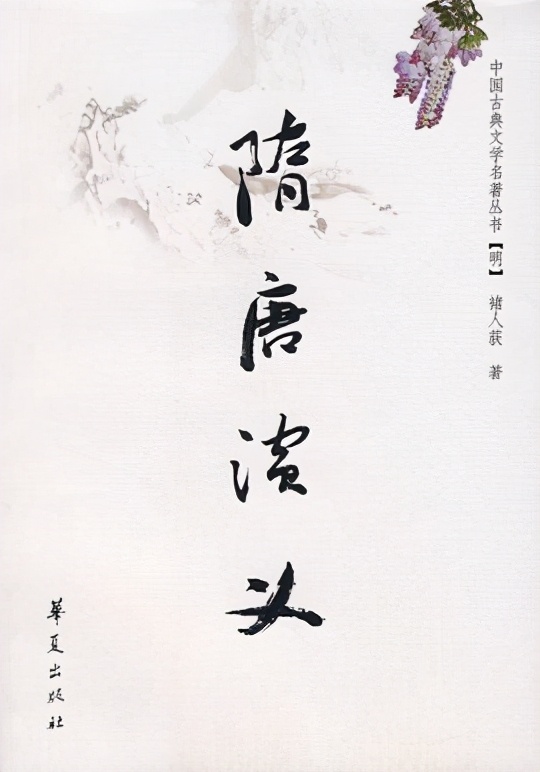 中国古典文学名著丛书【明】 褚人获 著
隋唐演义
华夏出版社